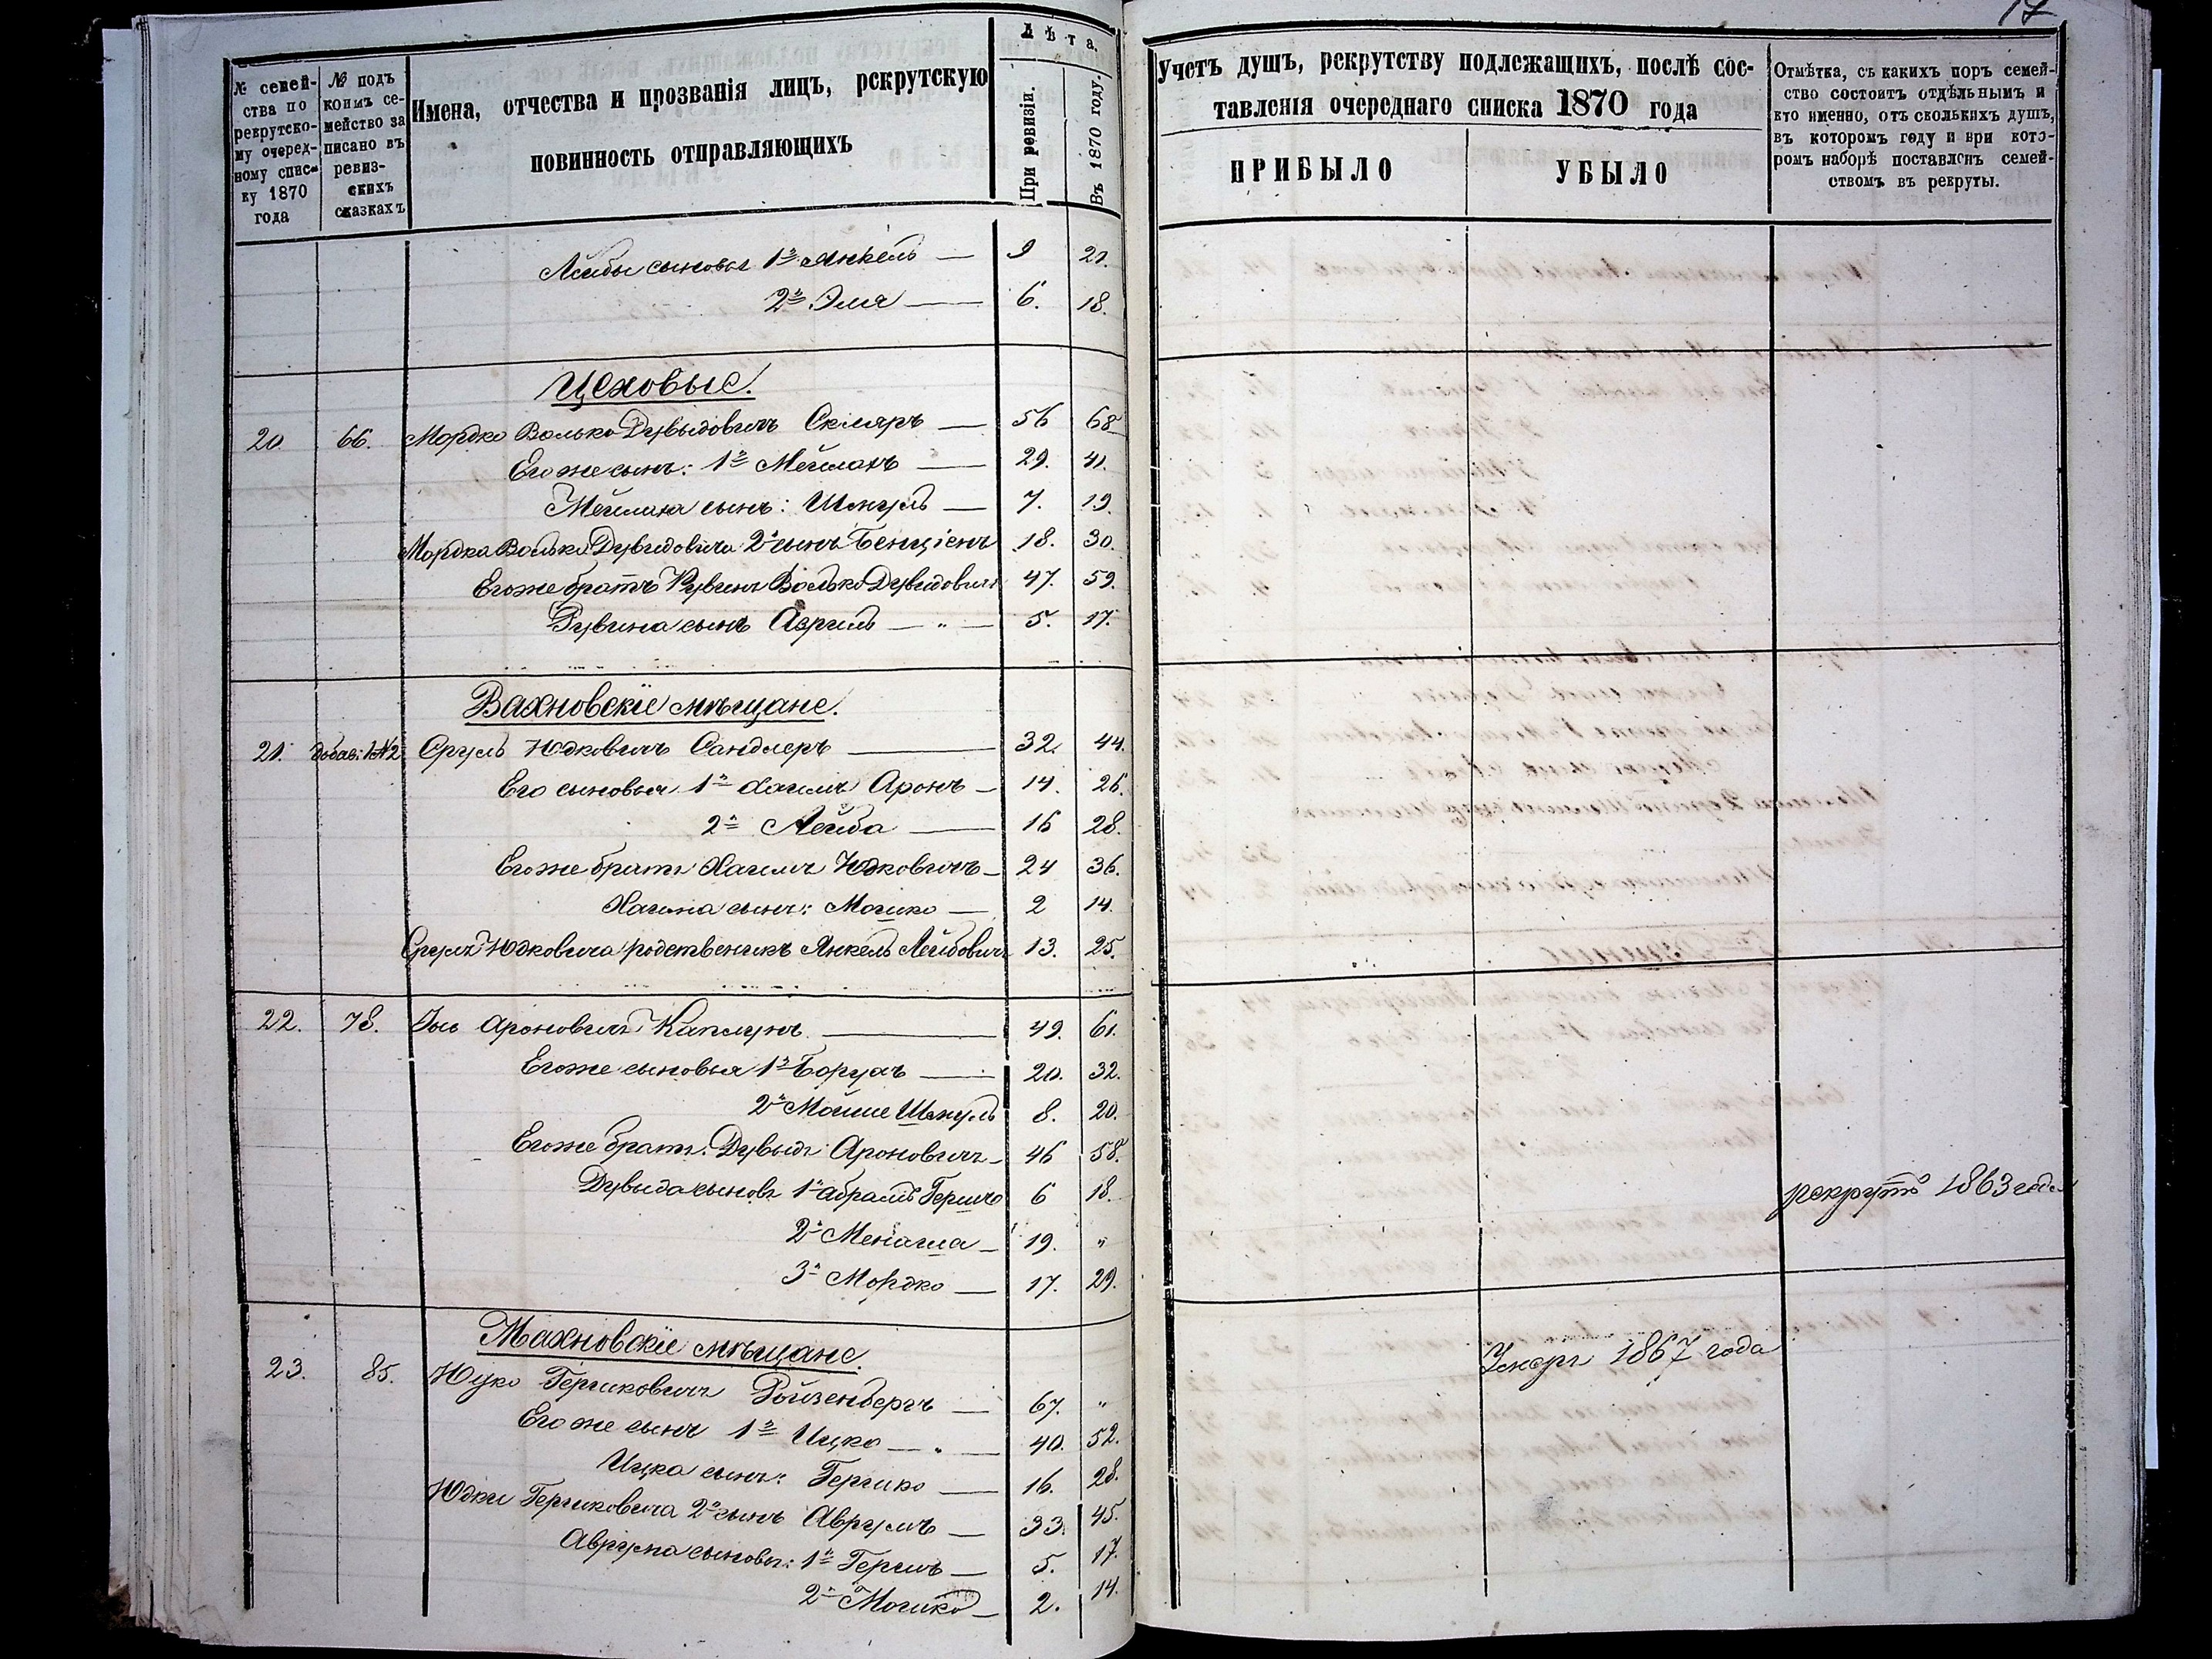 17
№ семей-
ства по
рекрутско-
му очеред-
ному спис-
ку 1870
года
№ подъ
коимъ се-
мейство за
писано въ
ревиз-
скихъ
сказкахъ
Имена, отчества и прозванія лицъ, рекрутскую
повинность отправляющихъ
Лѣта.
При ревизіи.
Въ 1870 году.
Учетъ душъ, рекрутству подлежащихъ, послѣ сос-
тавленія очереднаго списка 1870 года
ПРИБЫЛО
УБЫЛО
Отмѣтка, съ какихъ поръ семей-
ство состоитъ отдѣльнымъ и
кто именно, отъ сколькихъ душъ,
въ которомъ году и при кото-
ромъ наборѣ поставленъ семей-
ствомъ въ рекруты.
Лейбы сыновья 1й Янкель — 9 21.
2й Эля — 6. 18.
Цеховые.
20. 66. Мордко Волько Дувыдовичъ Скляръ — 56 68
Его же сынъ: 1й Мейлахъ — 29. 41.
Мейлаха сынъ: Шмуль — 7. 19.
Мордка Волька Дувидовича 2й сынъ Бенціенъ 18. 30.
Его же братъ Рувинъ Волько Дувидовичъ 47. 59.
Рувина сынъ Азриль — " — 5. 17.
Вахновскіе мѣщане.
21. добав: №2 Сруль Юдковичъ Сандлеръ — 32. 44.
Его сыновья 1й Хаимъ Аронъ — 14. 26.
2й Лейба — 16 28.
Его же братъ Хаимъ Юдковичъ — 24 36.
Хаима сынъ: Мошко — 2 14.
Сруля Юдковича родственикъ Янкель Лейбовичъ 13. 25.
22. 78. Іось Ароновичъ Каплунъ — 49. 61.
Его же сыновья 1й Борухъ — 20. 32.
2й Мойше Шмуль 8. 20.
Его же братъ: Дувыдъ Ароновичъ — 46 58.
Дувыда сыновья 1й Абрамъ Гершко 6 18.
2й — 19. "
рекрутъ 1863 года
3й Мордко — 17. 29.
Махновскіе мѣщане.
23. 85. Юдко Гершковичъ Ройзенбергъ — 67. "
Умеръ 1867 года
Его же сынъ 1й Ицко — " — 40. 52.
Ицка сынъ: Гершко — 16. 28.
Юдки Гершковича 2й сынъ Аврумъ — 33. 45.
Аврума сыновья: 1й Гершъ — 5. 17.
2й Мошко — 2. 14.